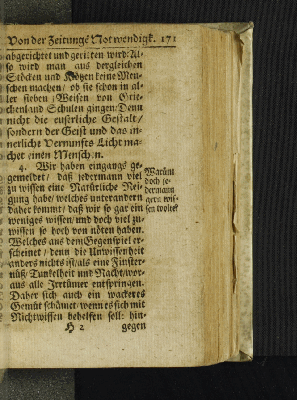 Von der Zeitungẽ Notwendigk. 171
abgerichtet und geritten wird: Al-
so wird man aus dergleichen
Stöcken und Klötzen keine Men-
schen machen/ ob sie schon in al-
ler sieben Weisen von Grie-
chenland Schulen gingen: Denn
nicht die euserliche Gestalt/
sondern der Geist und das in-
nerliche Vernunfts Licht ma-
chet einen Menschen.
4. Wir haben eingangs ge-
gemeldet/ daß jedermann viel
zu wissen eine Natürliche Nei-
gung habe/ welches unterandern
daher kommt/ daß wir so gar ein
weniges wissen/ und doch viel zu-
wissen so hoch von nöten haben.
Welches aus dem Gegenspiel er-
scheinet/ denn die Unwissenheit
anders nichts ist/ als eine Finster-
nüß/ Tunkelheit und Nacht/ wor-
aus alle Irrtümer entspringen.
Daher sich auch ein wackeres
Gemüt schämet/ wenn es sich mit
Nichtwissen behelfen soll: hin-
H 2 gegen
Warüm
doch je-
dermann
gern wis-
sen wolle?